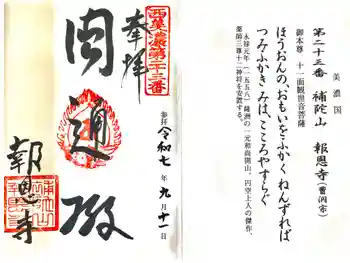 西美濃第二十三番
奉拝
円通殿
報恩寺
参拝 令和七年九月十一日
美濃国
第二十三番 補陀山 報恩寺(曹洞宗)
御本尊 十一面観世音菩薩
ほうおんの、おもいをふかく ねんずれば
つみふかきみは、こころやすらぐ
永禄元年(一五五八)薩洲の一元和尚開山。円空上人の傑作、
薬師三尊十二神将を安置する。